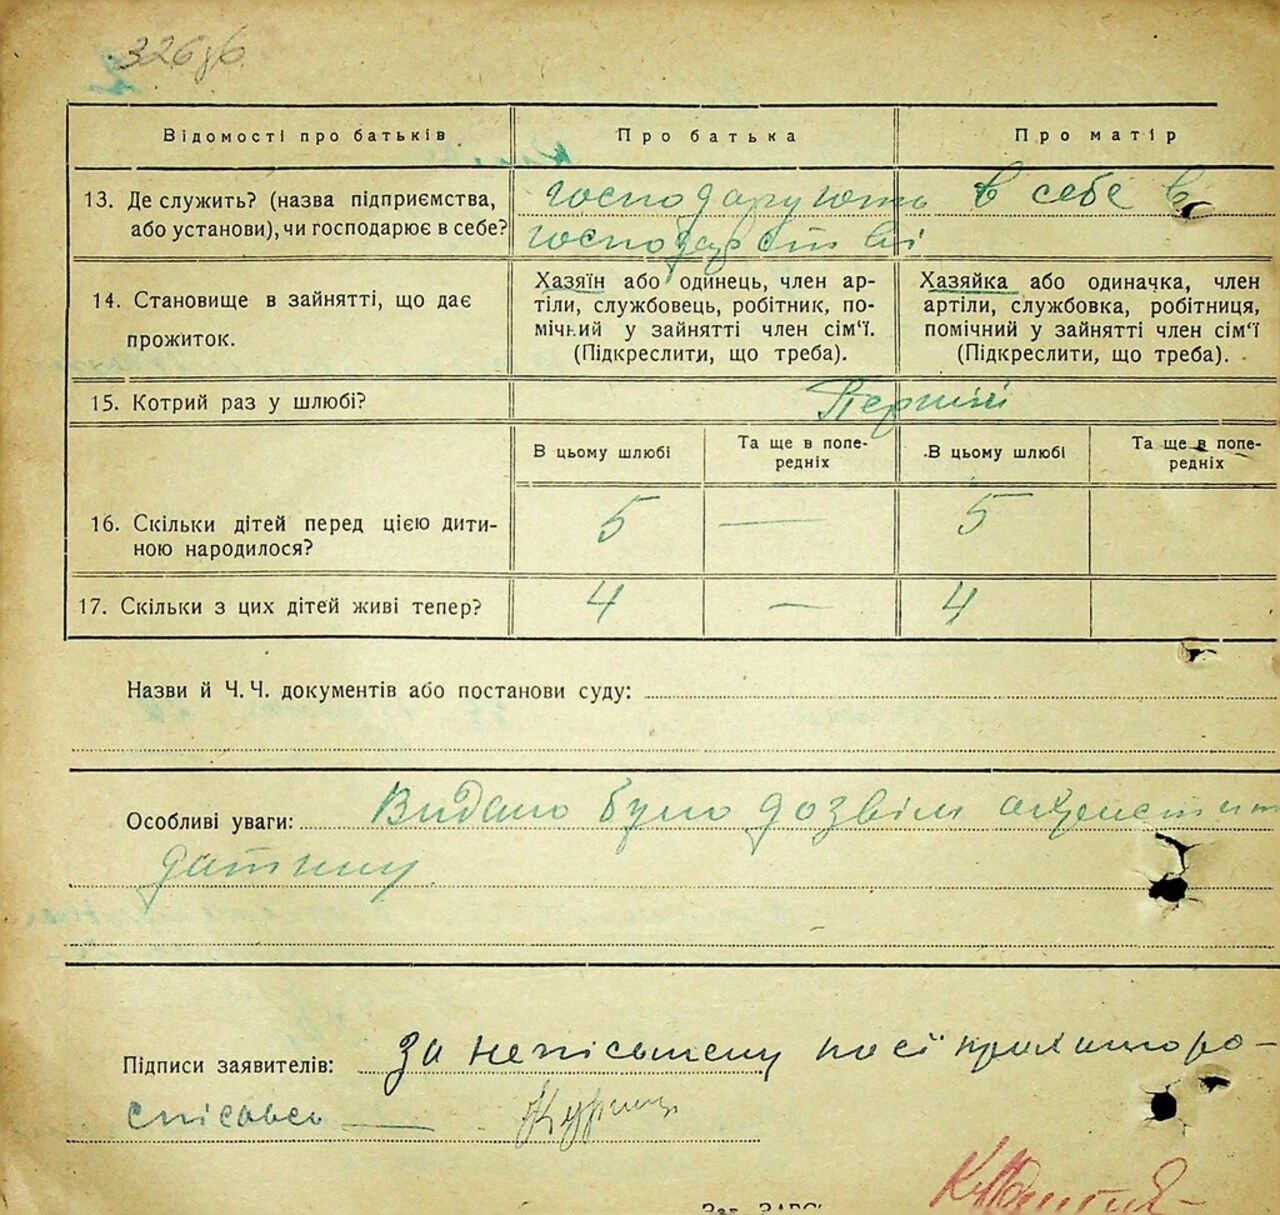 326зв
Відомості про батьків Про батька Про матір
13. Де служить? (назва підприємства, або установи), чи господарює в себе?
господарують в себе в
господарстві
14. Становище в зайнятті, що дає прожиток.
Хазяїн або одинець, член ар-
тіли, службовець, робітник, по-
мічний у зайнятті член сім'ї.
(Підкреслити, що треба).
Хазяйка або одиначка, член
артіли, службовка, робітниця,
помічний у зайнятті член сім'ї
(Підкреслити, що треба).
15. Котрий раз у шлюбі? Перший
В цьому шлюбі Та ще в попе-редніх В цьому шлюбі Та ще в попе-редніх
16. Скільки дітей перед цією дити-
ною народилося? 5 — 5
17. Скільки з цих дітей живі тепер? 4 — 4
Назви й Ч.Ч. документів або постанови суду:
Особливі уваги: Видано було дозвіл
дитину
Підписи заявителів: За неписьмену
спісавсь —
Зав. ЗАГС